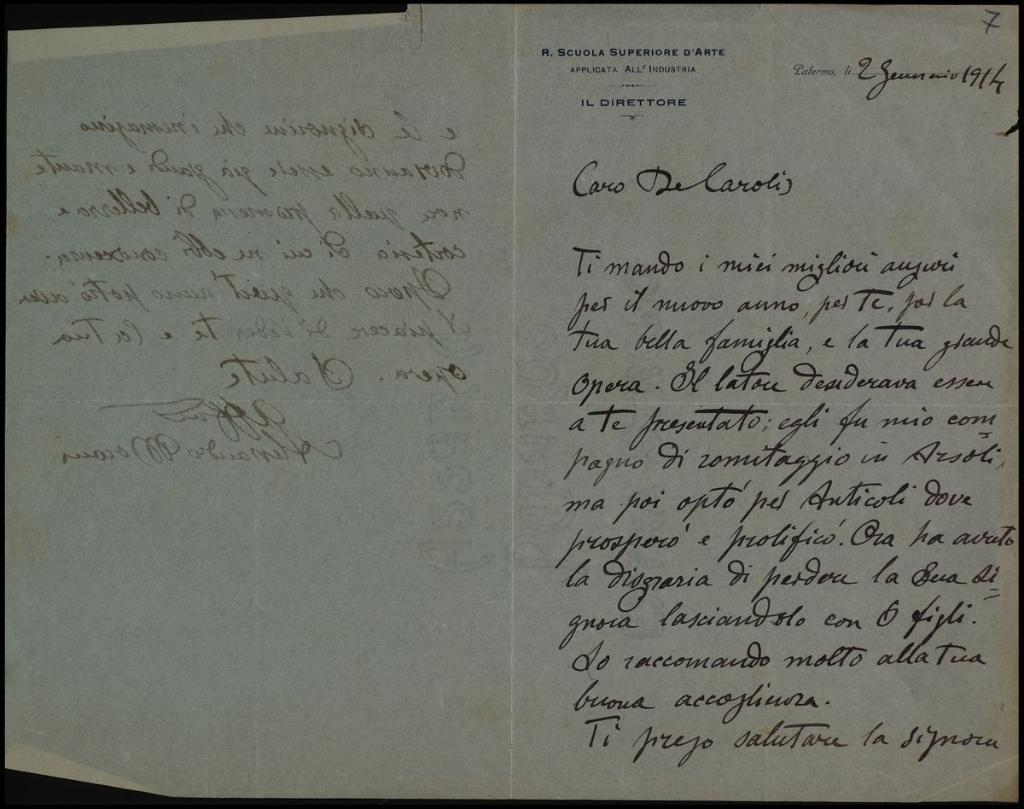 7
R. SCUOLA SUPERIORE D'ARTE
APPLICATA ALL' INDUSTRIA
IL DIRETTORE
Palermo, li 2 Gennaio 1914
Caro De Carolis
Ti mando i miei migliori auguri
per il nuovo anno, per te, per la
tua bella famiglia, e la tua grande
opera. Il latore desiderava essere
a te presentato; egli fu mio com=
pagno di romitaggio in Arsoli,
ma poi optò per Anticoli dove
prosperò e prolificò. Ora ha avuto
la disgrazia di perdere la Sua Si=
gnora lasciandolo con 6 figli.
Lo raccomando molto alla tua
buona accoglienza.
Ti prego salutare la signora
e le signorine che immagino
saranno essere già grandi e
non quella promessa di bellezza e
cortesia di cui ne ebbi conoscenza.
Spero che quest'anno potrò aver
il piacere di veder te e la tua
opera. Salute
Aff
Alessandro Morani